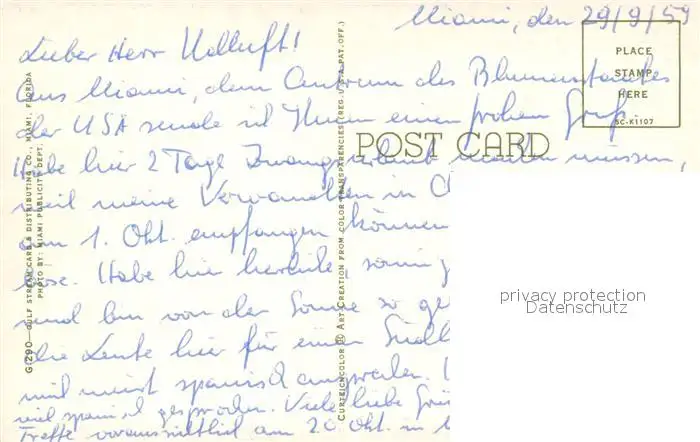 Miami, den 29/9/59
Lieber Herr Udluft!
Aus Miami, dem Centrum des Blumenstaates
der USA sende ich Ihnen einen frohen Gruß.
Habe hier 2 Tage Zwangsurlaub machen müssen,
weil meine Verwandten in C
am 1. Okt. empfangen können
Habe hier herrliche, sonnig
und bin von der Sonne so ge
die Leute hier für einen Südl
und meist spanisch ansprechen.
viel spanisch gesprochen. Viele liebe Grü
Treffe voraussichtlich am 20 Okt. in
PLACE
STAMP
HERE
SC-K1107
POST CARD
G-290—GULF STREAM CARD & DISTRIBUTING CO., MIAMI, FLORIDA
PHOTO BY: MIAMI PUBLICITY DEPT.
CURTEICHCOLOR ® ART CREATION FROM COLOR TRANSPARENCIES (REG. U.S.A. PAT. OFF.)
privacy protection
Datenschutz